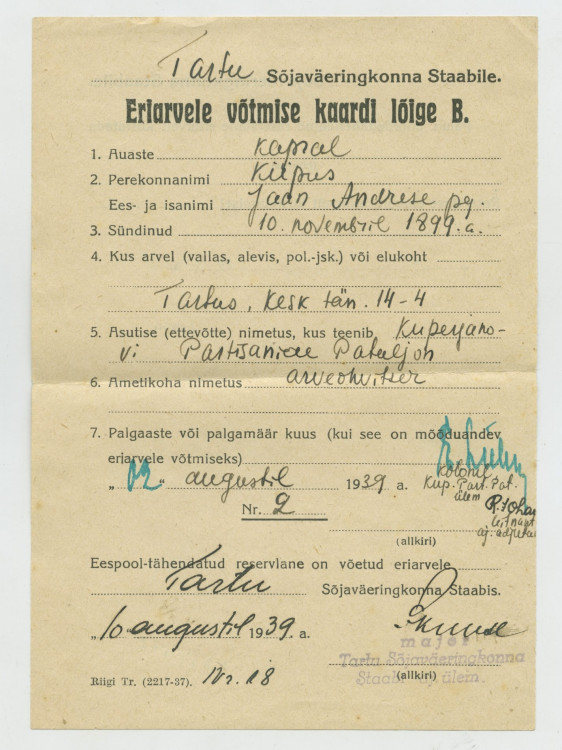 Tartu Sõjaväeringkonna Staabile.
Eriarvele võtmise kaardi lõige B.
1. Auaste kapral
2. Perekonnanimi Kiipus
Ees- ja isanimi Jaan Andrese pg.
3. Sündinud 10. novembril 1899. a.
4. Kus arvel (vallas, alevis, pol.-jsk.) või elukoht
Tartus, Kesk tän. 14-4
5. Asutise (ettevõtte) nimetus, kus teenib Kuperjano-
vi Partisanide Pataljon
6. Ametikoha nimetus arveohvitser
7. Palgaaste või palgamäär kuus (kui see on mõõduandev
eriarvele võtmiseks)
kolonel
Kup. Part. Pat.
ülem
" 02 " augustil 1939 a.
Nr. 2
(allkiri)
Eespool-tähendatud reservlane on võetud eriarvele
Tartu Sõjaväeringkonna Staabis.
„10 augustil 1939. a.
major
Tartu Sõjaväeringkonna
Staabi ülem.
(allkiri)
Riigi Tr. (2217-37). Nr. 18